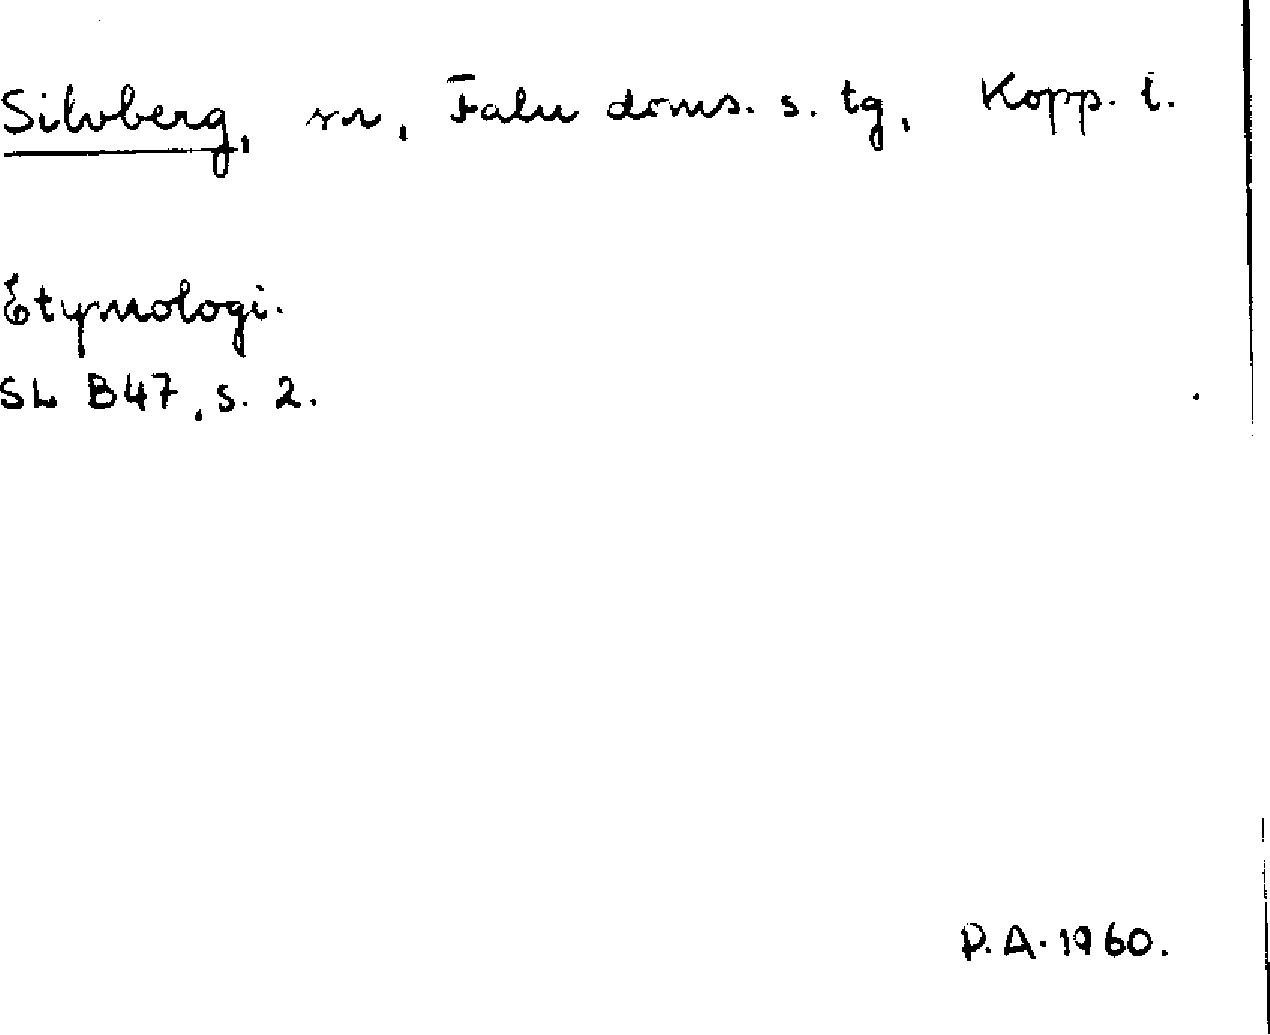 Silvberg, sn, Falu doms. s. tg, Kopp. l.
Etymologi.
SL B47, s. 2.
P.A. 1960.